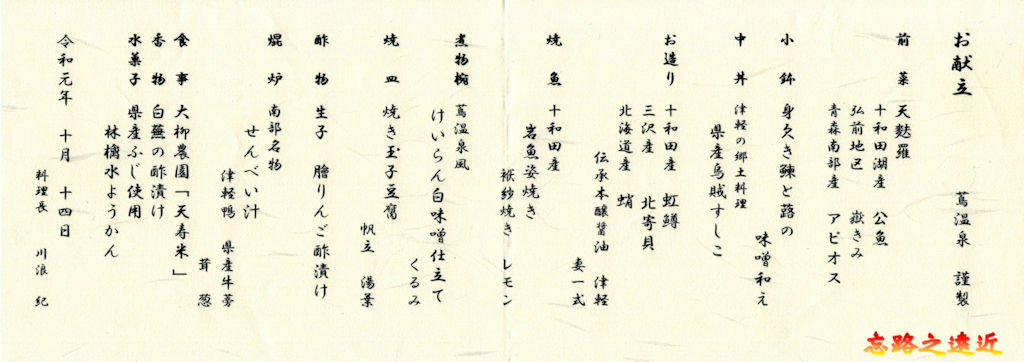 お献立　蔦温泉　謹製
前菜　天麩羅
十和田湖産　公魚
弘前地区　嶽きみ
青森南部産　アピオス
小鉢　身欠き鰊と蕗の
味噌和え
中丼　津軽の郷土料理
県産烏賊すしこ
お造り　十和田産　虹鱒
三沢産　北寄貝
北海道産　蛸
伝承本醸醤油　津軽
妻一式
焼魚　十和田産
岩魚姿焼き
袱紗焼き　レモン
煮物椀　蔦温泉風
けいらん白味噌仕立て
くるみ
焼皿　焼き玉子豆腐
帆立　湯葉
酢物　生子　膾りんご酢漬け
焜炉　南部名物
せんべい汁
津軽鴨　県産牛蒡
茸　葱
食事　大柳農園「天寿米」
香物　白蕪の酢漬け
水菓子　県産ふじ使用
林檎水ようかん
令和元年　十月　十四日
料理長　川浪　紀
忘路之遠近